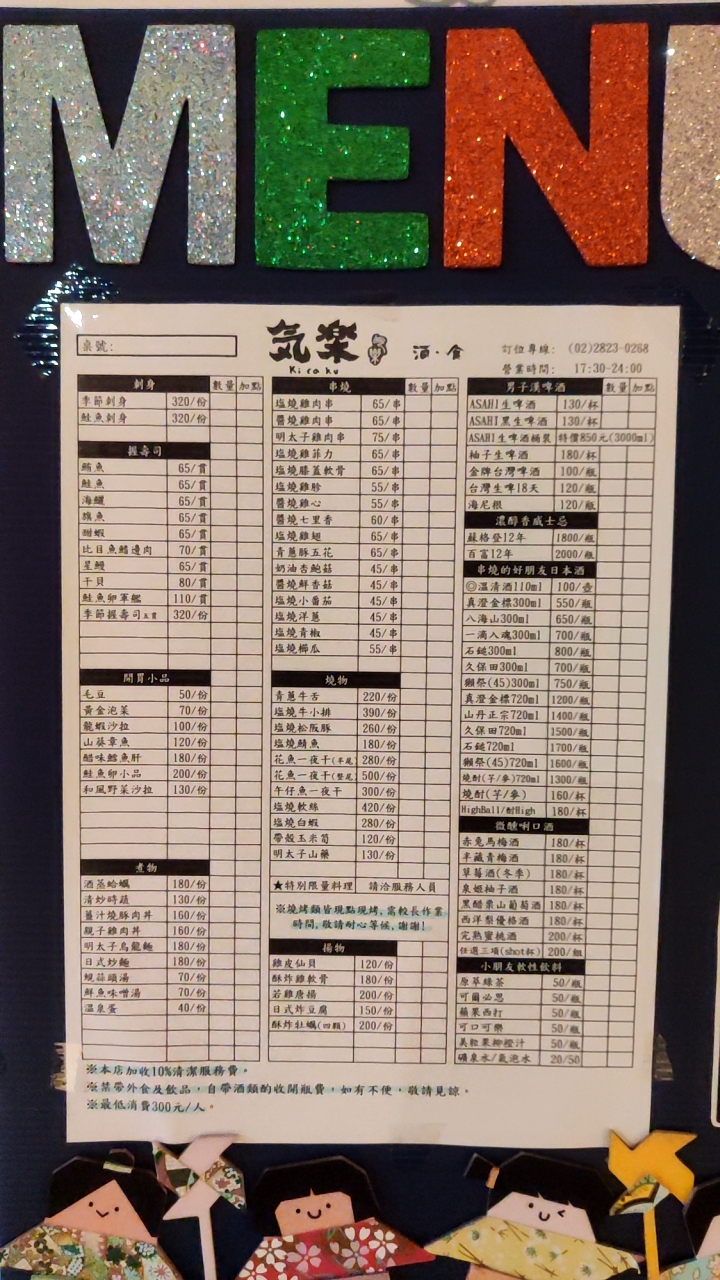 MENU
桌號:
気樂
Kiraku
酒·食
訂位專線: (02)2823-0268
營業時間: 17:30-24:00
刺身 數量 加點
季節刺身 320/份
鮭魚刺身 320/份
握壽司
鮪魚 65/貫
鮭魚 65/貫
海鱺 65/貫
旗魚 65/貫
甜蝦 65/貫
比目魚鰭邊肉 70/貫
星鰻 65/貫
干貝 80/貫
鮭魚卵軍艦 110/貫
季節握壽司五貫 320/份
開胃小品
毛豆 50/份
黃金泡菜 70/份
龍蝦沙拉 100/份
山葵章魚 120/份
醋味鱈魚肝 180/份
鮭魚卵小品 200/份
和風野菜沙拉 130/份
煮物
酒蒸蛤蠣 180/份
清炒時蔬 130/份
薑汁燒豚肉丼 160/份
親子雞肉丼 160/份
明太子烏龍麵 180/份
日式炒麵 180/份
蜆蒜頭湯 70/份
鮮魚味噌湯 70/份
溫泉蛋 40/份
串燒 數量 加點
塩燒雞肉串 65/串
醬燒雞肉串 65/串
明太子雞肉串 75/串
塩燒雞菲力 65/串
塩燒膝蓋軟骨 65/串
塩燒雞胗 55/串
塩燒雞心 55/串
醬燒七里香 60/串
塩燒雞翅 65/串
青蔥豚五花 65/串
奶油杏鮑菇 45/串
醬燒鮮香菇 45/串
塩燒小番茄 45/串
塩燒洋蔥 45/串
塩燒青椒 45/串
塩燒櫛瓜 55/串
燒物
青蔥牛舌 220/份
塩燒牛小排 390/份
塩燒松阪豚 260/份
塩燒鯖魚 180/份
花魚一夜干(半尾) 280/份
花魚一夜干(整尾) 500/份
午仔魚一夜干 300/份
塩燒軟絲 420/份
塩燒白蝦 280/份
帶殼玉米筍 120/份
明太子山藥 130/份
★特別限量料理 請洽服務人員
※燒烤類皆現點現烤,需較長作業
時間,敬請耐心等候,謝謝!
揚物
雞皮仙貝 120/份
酥炸雞軟骨 180/份
若雞唐揚 200/份
日式炸豆腐 150/份
酥炸牡蠣(四顆) 200/份
男子漢啤酒 數量 加點
ASAHI生啤酒 130/杯
ASAHI黑生啤酒 130/杯
ASAHI生啤酒桶裝 特價850元(3000ml)
柚子生啤酒 180/杯
金牌台灣啤酒 100/瓶
台灣生啤18天 120/瓶
海尼根 120/瓶
濃醇香威士忌
蘇格登12年 1800/瓶
百富12年 2000/瓶
串燒的好朋友日本酒
◎溫清酒110ml 100/壺
真澄金標300ml 550/瓶
八海山300ml 650/瓶
一滴入魂300ml 700/瓶
石鎚300ml 800/瓶
久保田300ml 700/瓶
獺祭(45)300ml 750/瓶
真澄金標720ml 1200/瓶
山丹正宗720ml 1400/瓶
久保田720ml 1500/瓶
石鎚720ml 1700/瓶
獺祭(45)720ml 1600/瓶
燒酎(芋/麥)720ml 1300/瓶
燒酎(芋/麥) 160/杯
HighBall/酎High 180/杯
微醺唎口酒
赤兔馬梅酒 180/杯
半藏青梅酒 180/杯
草莓酒(冬季) 180/杯
泉姬柚子酒 180/杯
黑醋栗山葡萄酒 180/杯
西洋梨優格酒 180/杯
完熟蜜桃酒 200/杯
任選三項(shot杯) 200/組
小朋友軟性飲料
原萃綠茶 50/瓶
可爾必思 50/瓶
蘋果西打 50/瓶
可口可樂 50/瓶
美粒果柳橙汁 50/瓶
礦泉水/氣泡水 20/50
※本店加收10%清潔服務費。
※禁帶外食及飲品,自帶酒類酌收開瓶費,如有不便,敬請見諒。
※最低消費300元/人。